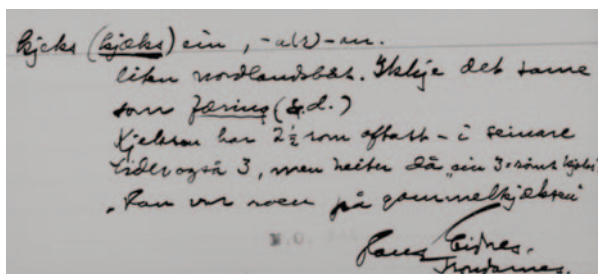 kjeks (kjæks) ein, -a(r) -an.
liten nordlandsbåt. Ikkje det same
som færing (s.d.)
Kjeksen har 2½ rom oftast - i seinare
tider også 3, men heiter då „ein 3-røms kjeks"
„Han var roen på gammelkjæksen"
N.O.
Hans Eidnes.
Trondarnes.